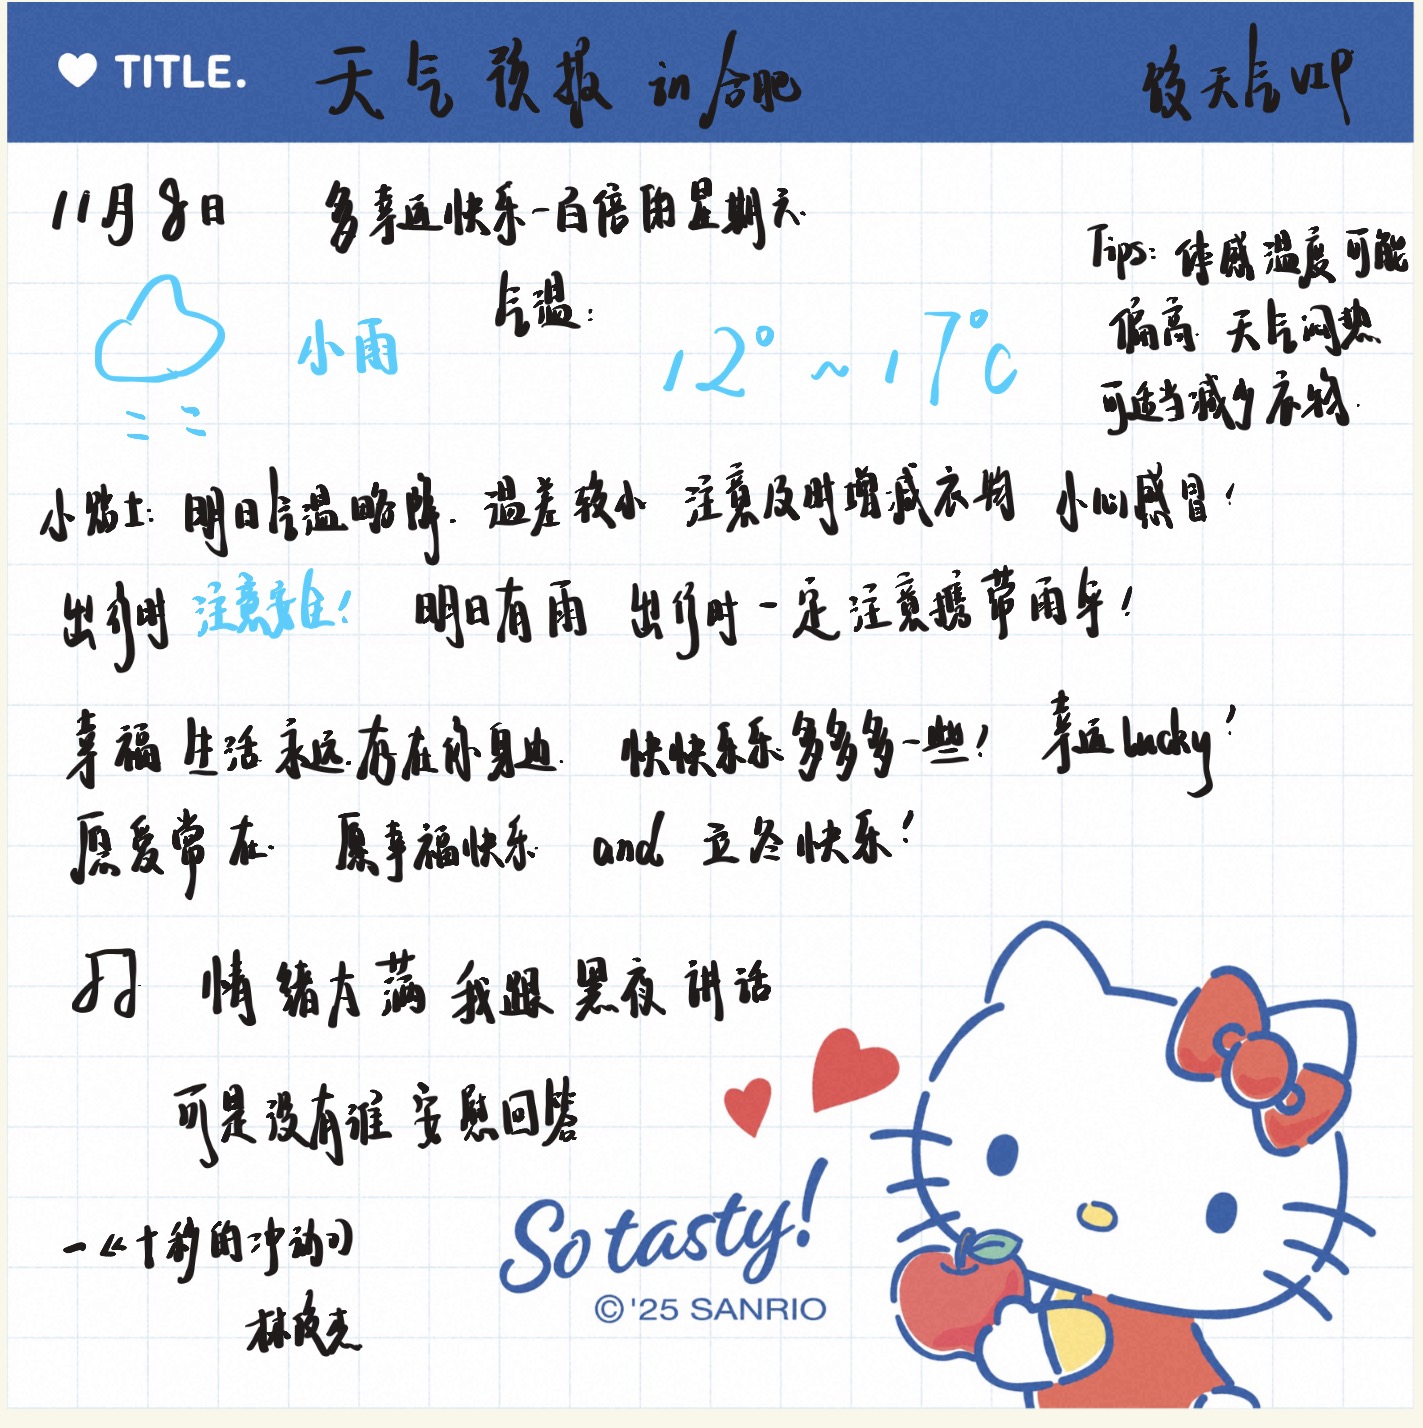 TITLE. 天气预报 in 合肥 天气VIP
11月8日 多幸运快乐一百倍的星期六.
Tips: 体感温度可能
偏高 天气闷热
可适当减少衣物.
气温:
小雨 12° ~ 17℃
小贴士: 明日气温略降. 温差较小 注意及时增减衣物 小心感冒!
出行时 注意安全! 明日有雨 出行时一定注意携带雨伞!
幸福生活永远存在你身边. 快快乐乐多多多一些! 幸运lucky!
愿爱常在. 愿幸福快乐 and 立冬快乐!
情绪太满 我跟黑夜讲话
可是没有谁安慰回答
-《十秒的冲动》
林俊杰
So tasty!
©'25 SANRIO